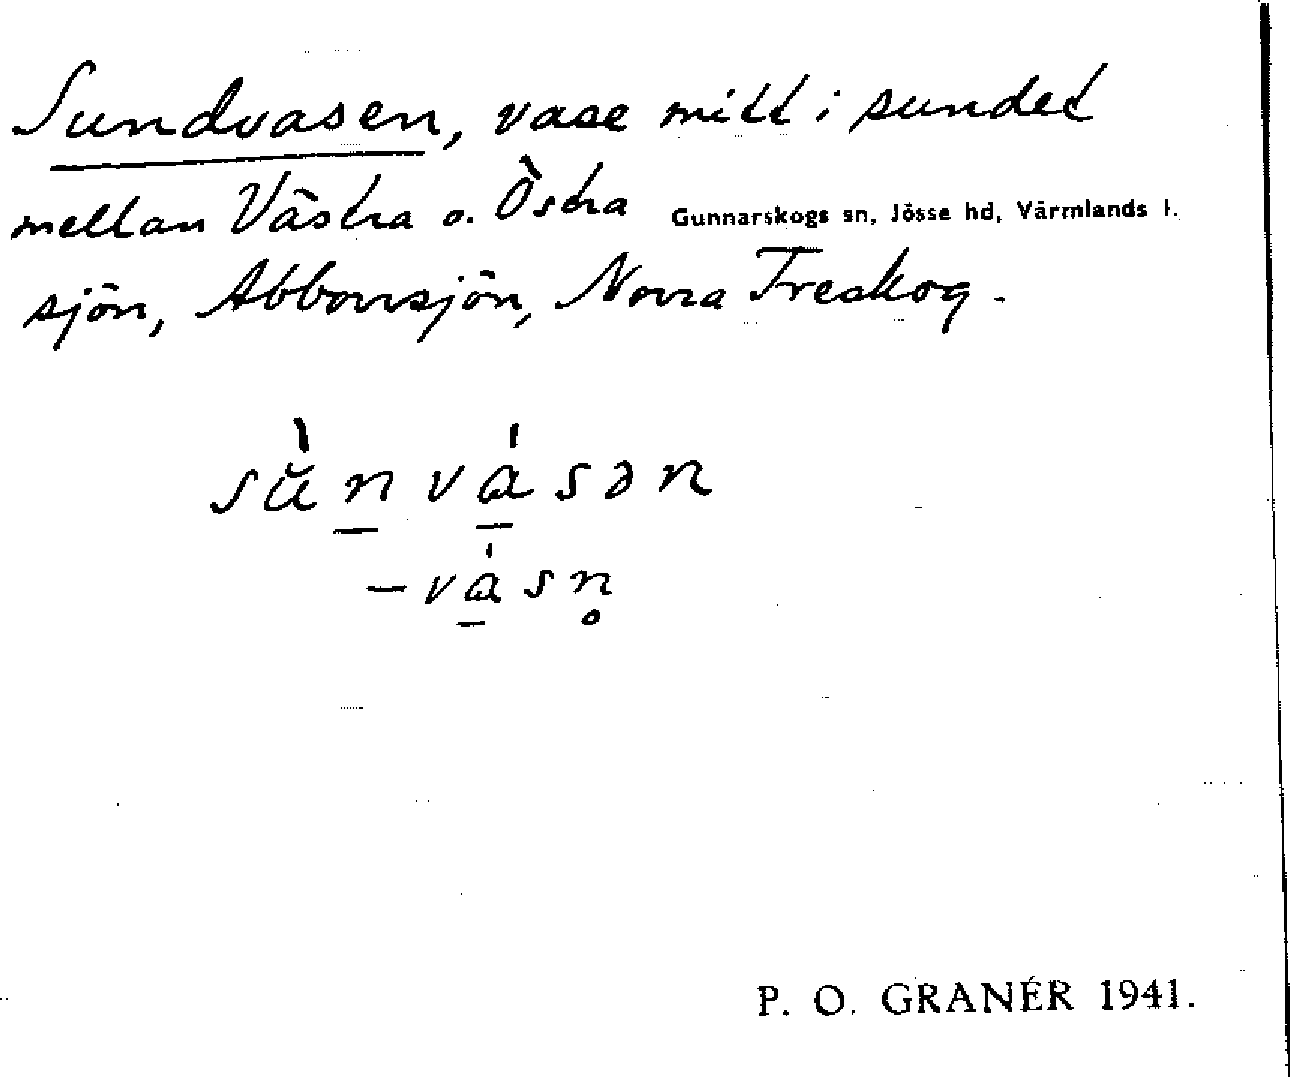 Sundvasen, vase mitt i sundet
mellan Västra o. Östra Gunnarskogs sn, Jösse hd, Värmlands l.
sjön, Abborrsjön, Norra Treskog.
sùn vásən
– vásn̥
P. O. GRANÉR 1941.